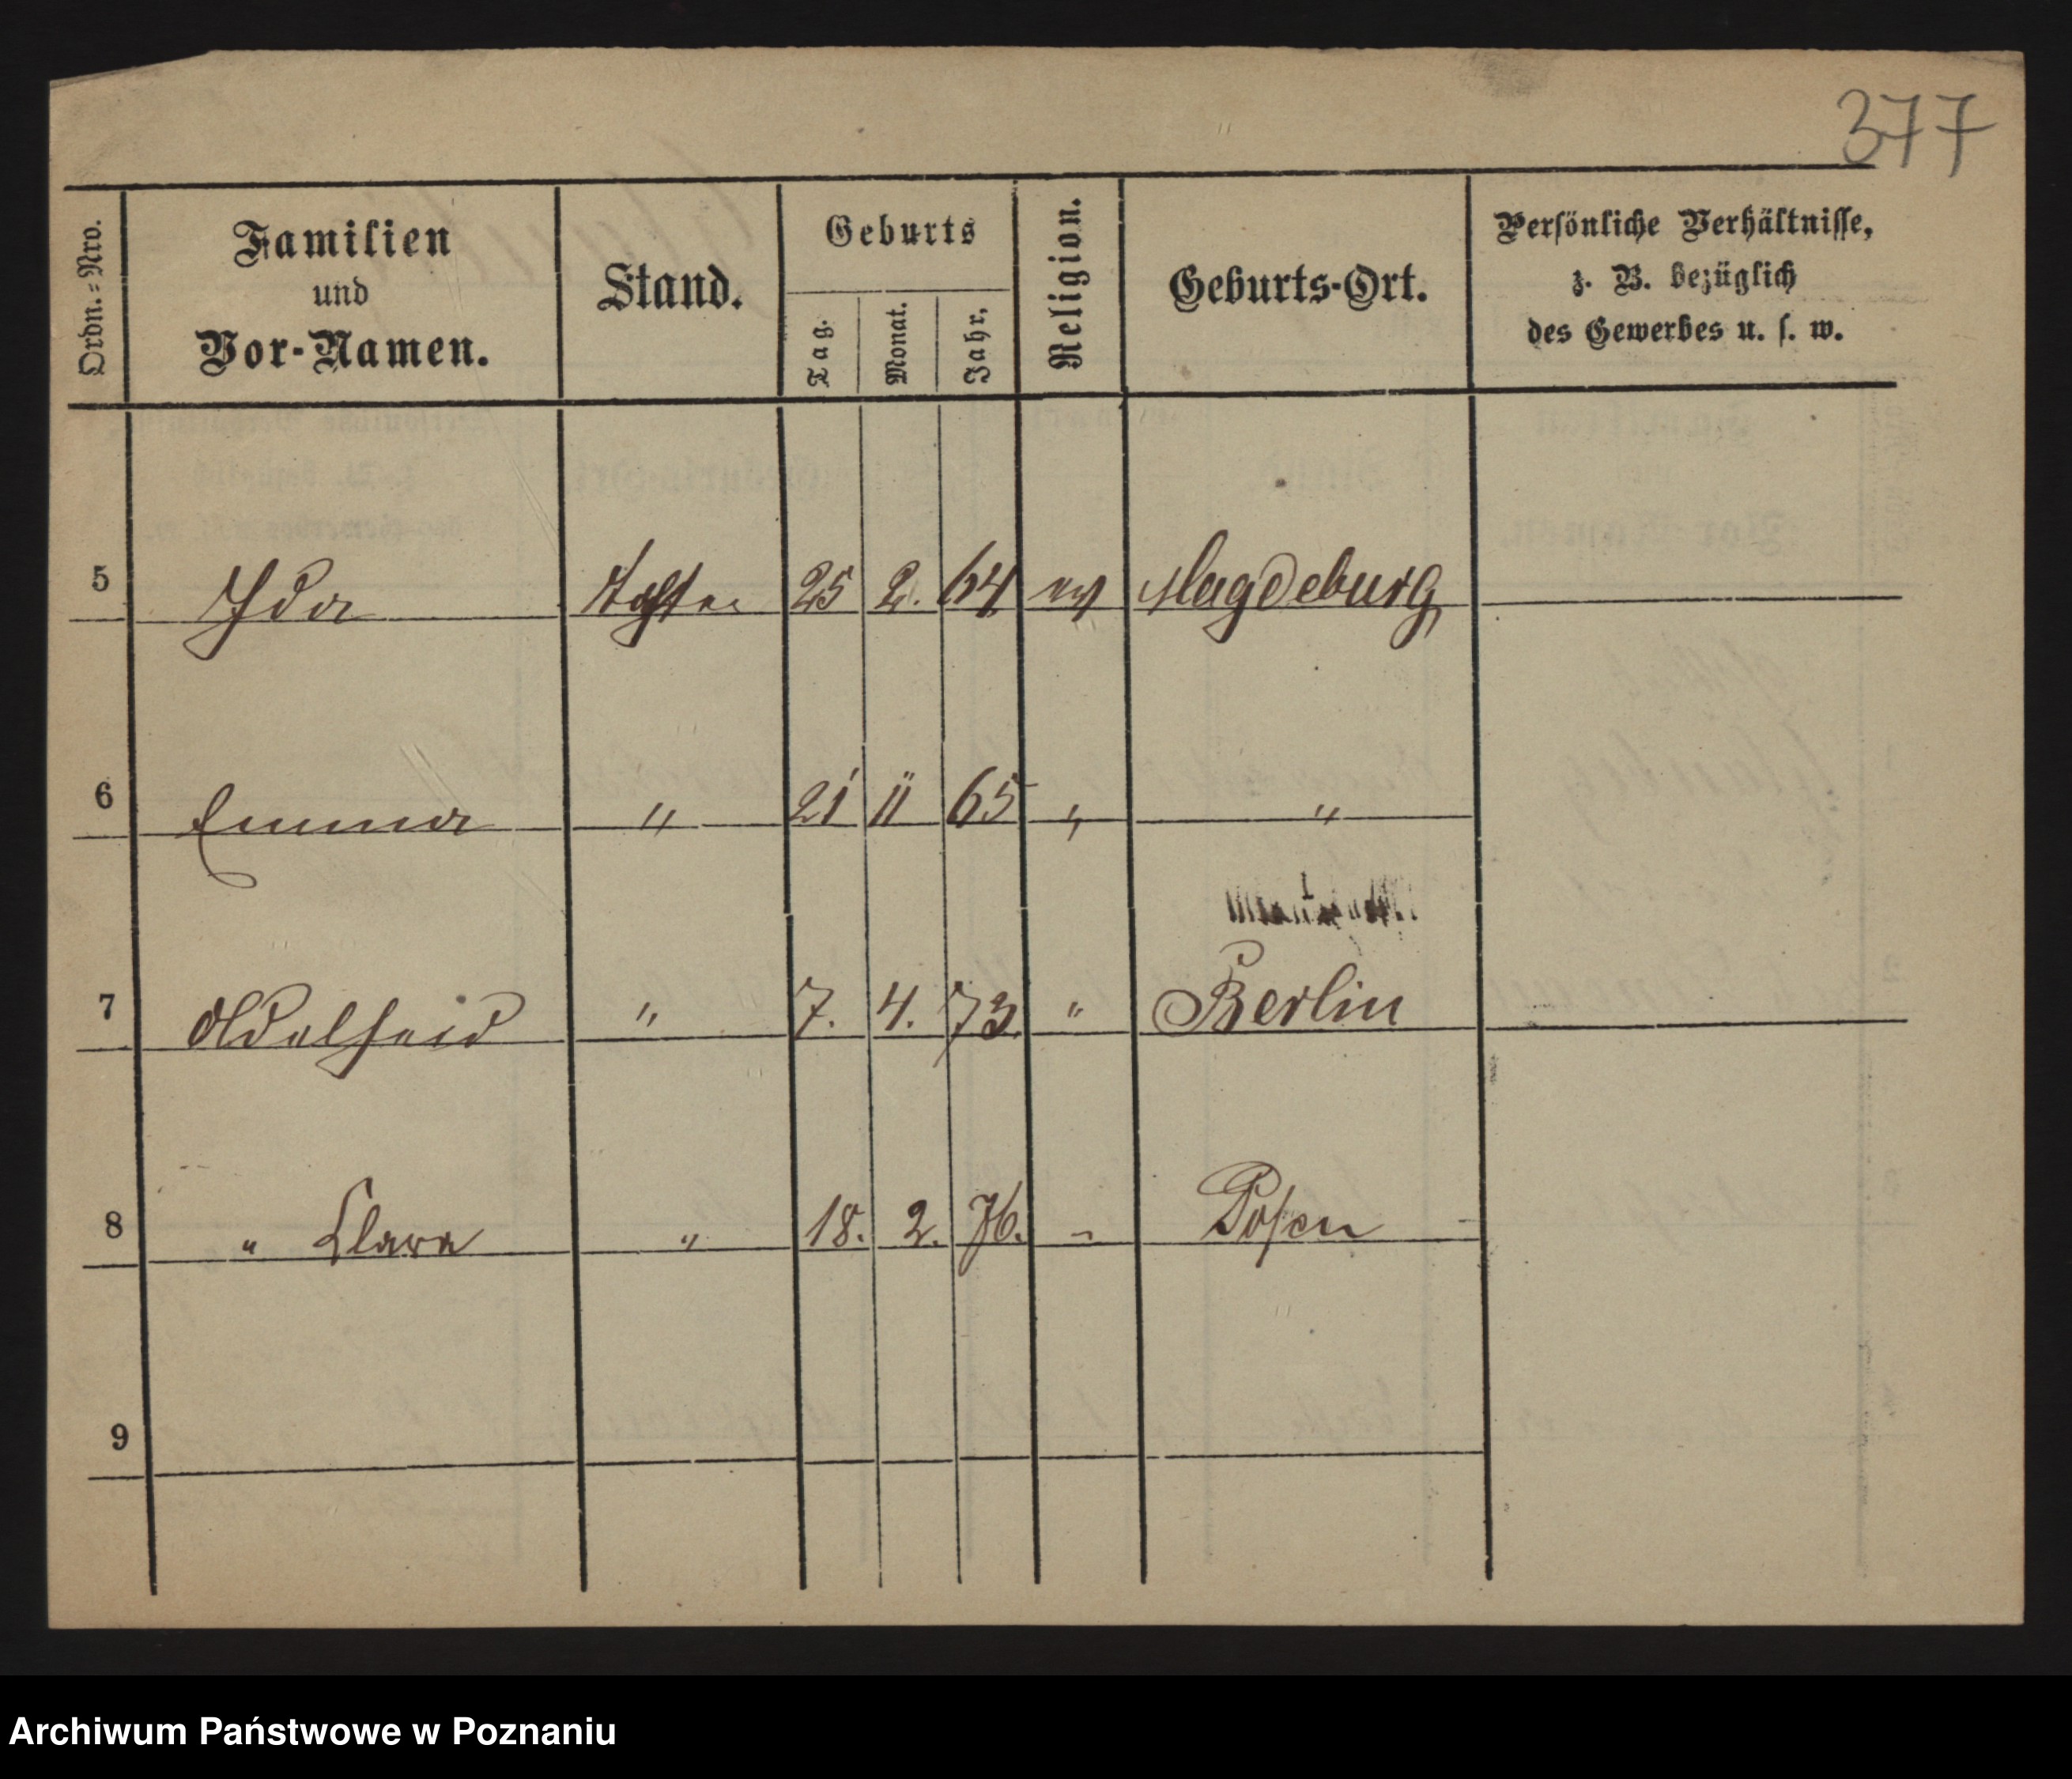 377
Ordn.-Nro.
Familien
und
Vor-Namen.
Stand.
Geburts
Tag.
Monat.
Jahr.
Religion.
Geburts-Ort.
Persönliche Verhältnisse,
z. B. bezüglich
des Gewerbes u. s. w.
5 Ida Tochter 25 2. 64 ev Magdeburg
6 Emma " 21 11 65 " "
7 Adelheid " 7. 4. 73. " Berlin
8 " Clara " 18. 2. 76. - Posen -
9
Archiwum Państwowe w Poznaniu